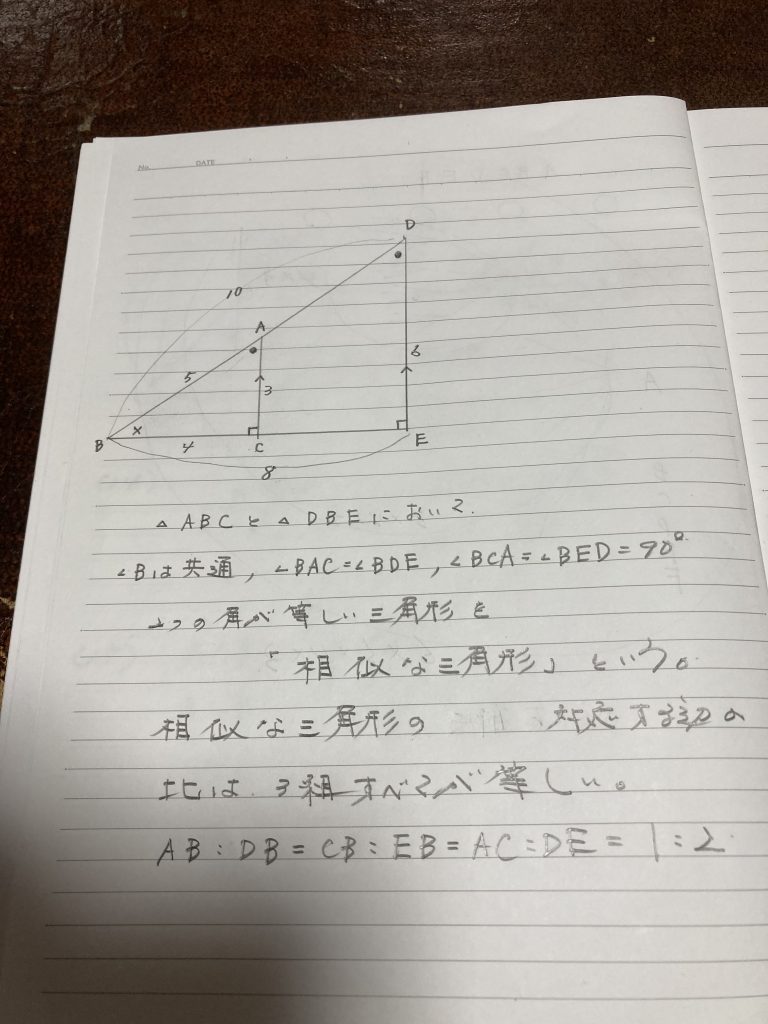 No.
DATE
D
10
A
5
3
6
B
×
4
C
E
8
△ABCと△DBEにおいて.
∠Bは共通, ∠BAC=∠BDE, ∠BCA=∠BED=90°
2つの角が等しい三角形を
「相似な三角形」という。
相似な三角形の 対応する辺の
比は 3組すべてが等しい。
AB:DB=CB:EB=AC:DE=1:2